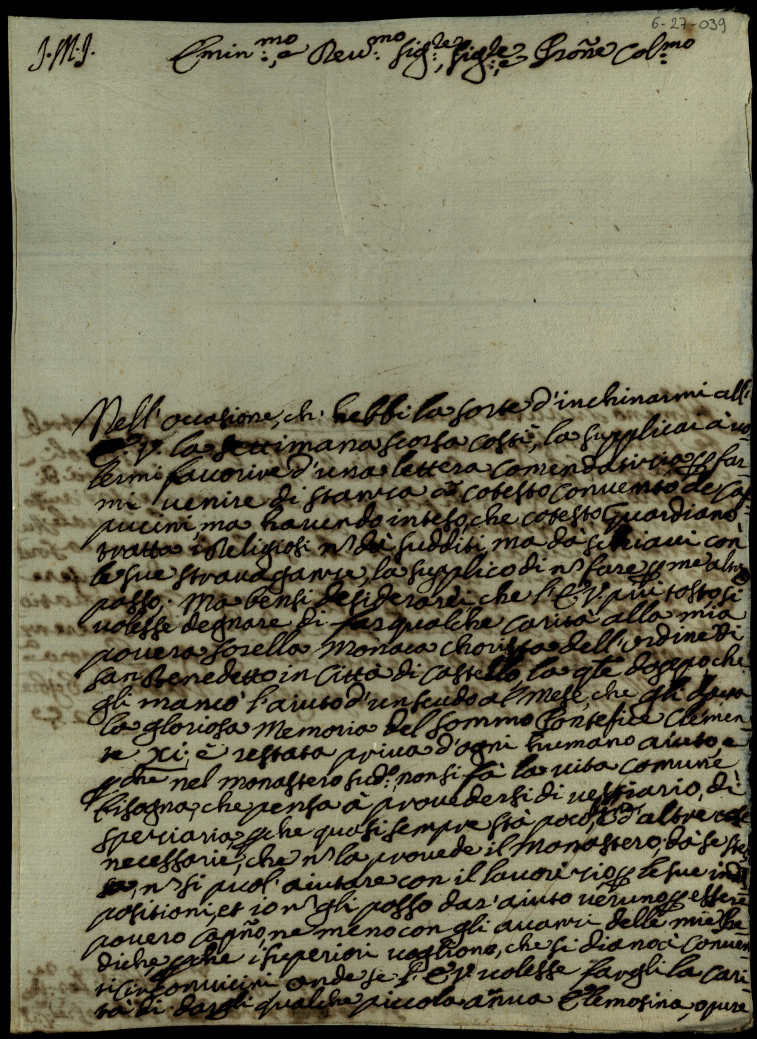 6-27-039
J. M. J. Emin.mo, e Reu.mo Sig.re, Sig.re, e Prone Col.mo
Nell'occasione, ch' hebbi la sorte d'inchinarmi all'
E. V. la settimana scorsa costì, la supplicai à uo
lermi fauorire d'una lettera comendatitia p far
mi uenire di stanza à cotesto conuento de Ca
puccini, ma hauendo inteso, che cotesto Guardiano
tratta i Religiosi nō dà sudditi, ma dà schiaui con
le sue strauaganze, la supplico di nō fare p me altro
passo. Ma bensì desiderarei che l'E. V. più tosto si
uolesse degnare di far qualche carità alla mia
pouera sorella Monaca chorista dell'ordine di
San Benedetto in Città di Castello, la qle doppo che
gli mancò l'aiuto d'un scudo al mese, che gli daua
la gloriosa Memoria del Sommo Pontefice Clemen
te XI, è restata priua d'ogni humano aiuto, e
pche nel monastero sud.o non si fà la uita comune
bisogna, che pensa à prouedersi di uestiario, di
speciaria, pche quasi sempre stà poco bene, e d'altre cose
necessarie, che nō la prouede il Monastero, dà se stes
sa, nō si puol'aiutare con il lauorìcio p le sue indis
positioni, et io nō gli posso dar'aiuto ueruno p essere
pouero Capño, ne meno con gli auanzi delle mie pre
diche, pche i superiori uogliono, che si diano à i Conuen
ti conuicini, onde se l'E. V. uolesse fargli la cari
tà di dargli qualche piccola añua elemosina, opure